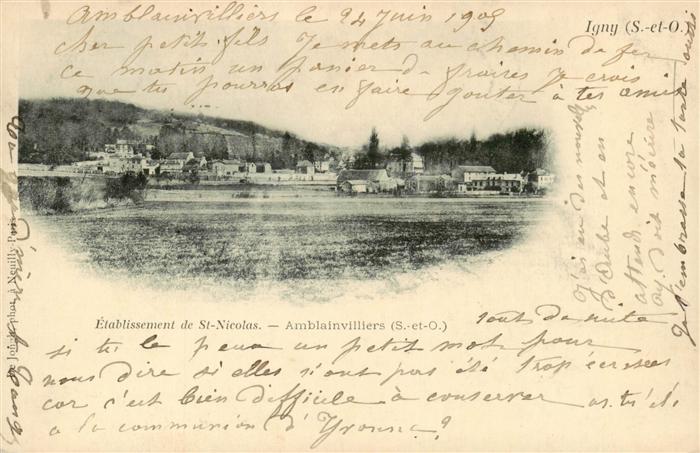 Amblainvilliers le 24 Juin 1905
Igny (S.-et-O.)
cher petit fils Je mets au chemin de fer
ce matin un panier de fraises Je crois
que tu pourras en faire gouter à tes amis
Établissement de St-Nicolas. — Amblainvilliers (S.-et-O.)
tout de suite
si tu le peux un petit mot pour
nous dire si elles n'ont pas été trop écrasées
car c'est bien difficile à conserver as-tu été
a la communion d'Yvonne?
J'ai eu des nouvelles
et en
attends encore
Je t'embrasse ta tante
phot. à Neuilly